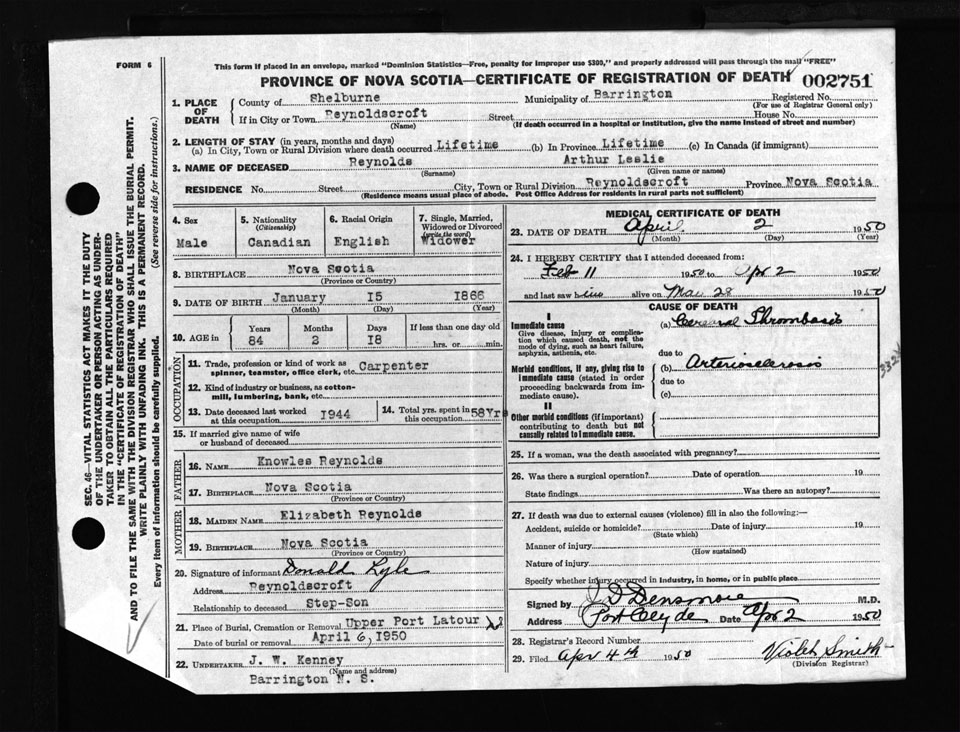 FORM 6
This form if placed in an envelope, marked "Dominion Statistics—Free, penalty for improper use $300," and properly addressed will pass through the mail "FREE"
PROVINCE OF NOVA SCOTIA—CERTIFICATE OF REGISTRATION OF DEATH 002751
1. PLACE OF DEATH
County of Shelburne Municipality of Barrington Registered No.
(For use of Registrar General only)
If in City or Town Reynoldscroft Street House No.
(Name) (If death occurred in a hospital or institution, give the name instead of street and number)
2. LENGTH OF STAY (in years, months and days)
(a) In City, Town or Rural Division where death occurred Lifetime (b) In Province Lifetime (c) In Canada (if immigrant)
3. NAME OF DECEASED Reynolds Arthur Leslie
(Surname) (Given name or names)
RESIDENCE No. Street City, Town or Rural Division Reynoldscroft Province Nova Scotia
(Residence means usual place of abode. Post Office Address for residents in rural parts not sufficient)
4. Sex
Male
5. Nationality
(Citizenship)
Canadian
6. Racial Origin
English
7. Single, Married, Widowed or Divorced
(write the word)
Widower
8. BIRTHPLACE Nova Scotia
(Province or Country)
9. DATE OF BIRTH January 15 1866
(Month) (Day) (Year)
10. AGE in
Years Months Days If less than one day old
84 2 18 hrs. or min.
OCCUPATION
11. Trade, profession or kind of work as Carpenter
spinner, teamster, office clerk, etc.
12. Kind of industry or business, as cotton-
mill, lumbering, bank, etc.
13. Date deceased last worked
at this occupation 1944
14. Total yrs. spent in
this occupation 58Yrs
15. If married give name of wife
or husband of deceased
FATHER
16. NAME Knowles Reynolds
17. BIRTHPLACE Nova Scotia
(Province or Country)
MOTHER
18. MAIDEN NAME Elizabeth Reynolds
19. BIRTHPLACE Nova Scotia
(Province or Country)
20. Signature of informant Donald Lyle
Address Reynoldscroft
Relationship to deceased Step-Son
21. Place of Burial, Cremation or Removal Upper Port Latour
Date of burial or removal April 6, 1950
22. UNDERTAKER J. W. Kenney
(Name and address)
Barrington N. S.
MEDICAL CERTIFICATE OF DEATH
23. DATE OF DEATH April 2 1950
(Month) (Day) (Year)
24. I HEREBY CERTIFY that I attended deceased from:
Feb 11 1950 to Apr 2 1950
and last saw him alive on Mar 28 1950
CAUSE OF DEATH
I
Immediate cause
Give disease, injury or complication which caused death, not the mode of dying, such as heart failure, asphyxia, asthenia, etc.
(a) Cerebral Thrombosis
due to
Morbid conditions, if any, giving rise to immediate cause (stated in order proceeding backwards from immediate cause).
(b) Arteriosclerosis
due to
(c)
II
Other morbid conditions (if important) contributing to death but not causally related to immediate cause.
25. If a woman, was the death associated with pregnancy?
26. Was there a surgical operation? Date of operation 19
State findings Was there an autopsy?
27. If death was due to external causes (violence) fill in also the following:—
Accident, suicide or homicide? Date of injury 19
(State which)
Manner of injury
(How sustained)
Nature of injury
Specify whether injury occurred in industry, in home, or in public place
Signed by J D Densmore M.D.
Address Port Clyde Date Apr 2 1950
28. Registrar's Record Number
29. Filed Apr 4th 1950 Violet Smith
(Division Registrar)
SEC. 46—VITAL STATISTICS ACT MAKES IT THE DUTY
OF THE UNDERTAKER OR PERSON ACTING AS UNDER-
TAKER TO OBTAIN ALL THE PARTICULARS REQUIRED
IN THE "CERTIFICATE OF REGISTRATION OF DEATH"
AND TO FILE THE SAME WITH THE DIVISION REGISTRAR WHO SHALL ISSUE THE BURIAL PERMIT.
WRITE PLAINLY WITH UNFADING INK. THIS IS A PERMANENT RECORD.
Every item of information should be carefully supplied. (See reverse side for instructions.)